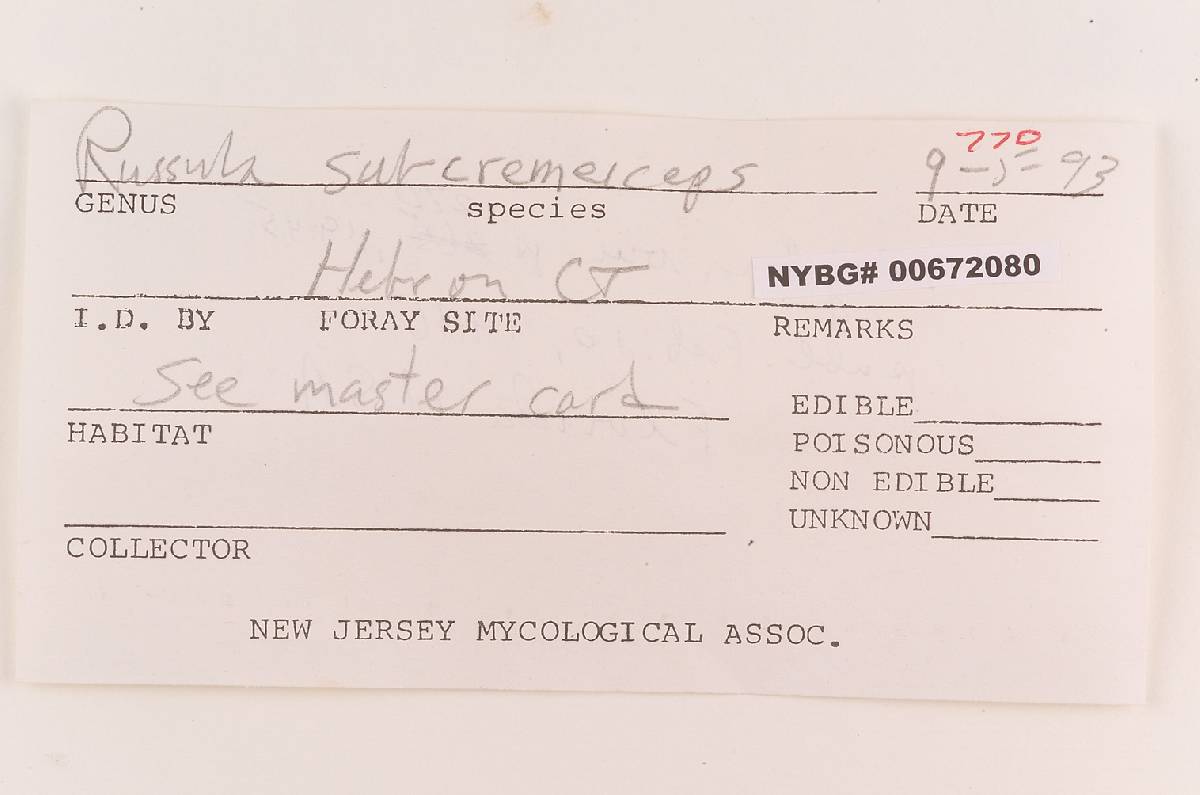 770
Russula subcremeiceps 9-5-93
GENUS species DATE
Hebron CT NYBG# 00672080
I.D. BY FORAY SITE REMARKS
See master card
EDIBLE
HABITAT
POISONOUS
NON EDIBLE
UNKNOWN
COLLECTOR
NEW JERSEY MYCOLOGICAL ASSOC.